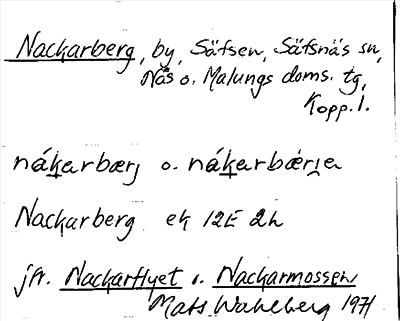 Nackarberg, by, Säfsen, Säfsnäs sn,
Näs o. Malungs doms. tg,
Kopp. l.
nákarbærj o. nákarbǽrja
Nackarberg ek 12E 2h
jfr. Nackarflyet o. Nackarmossen
Mats Wahlberg 1971